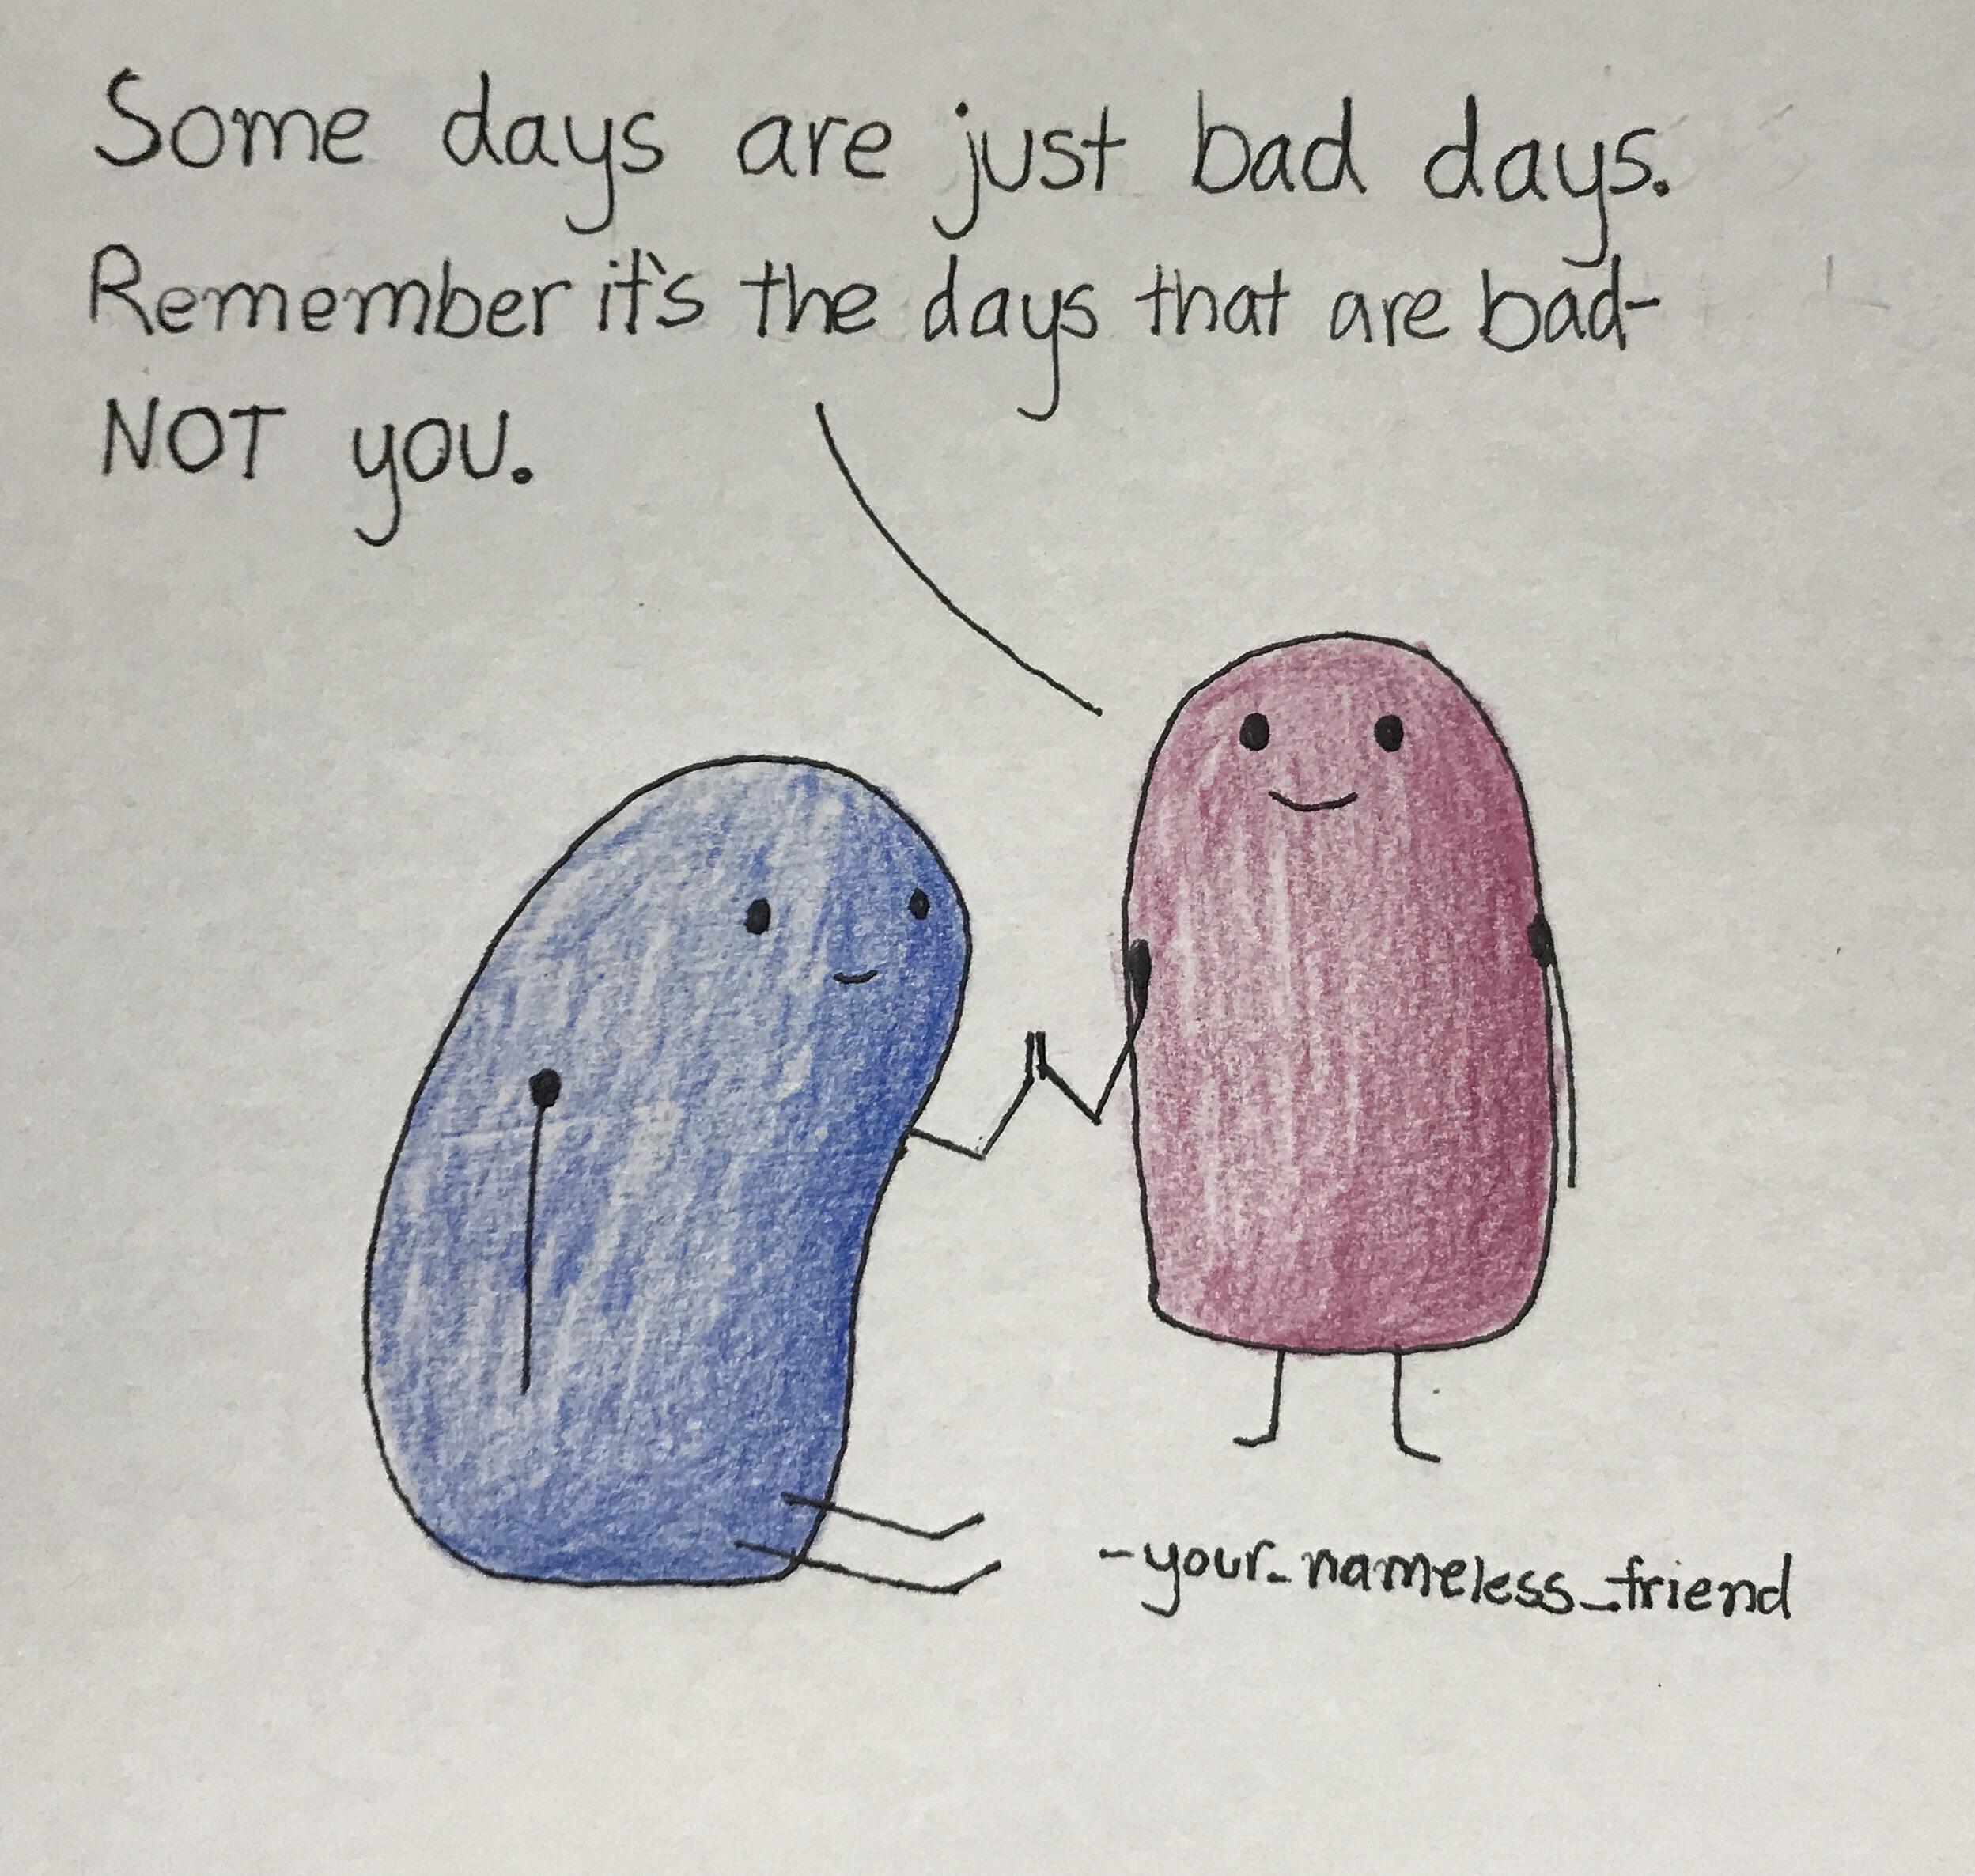 Some days are just bad days.
Remember it's the days that are bad-
NOT you.
-your_nameless_friend